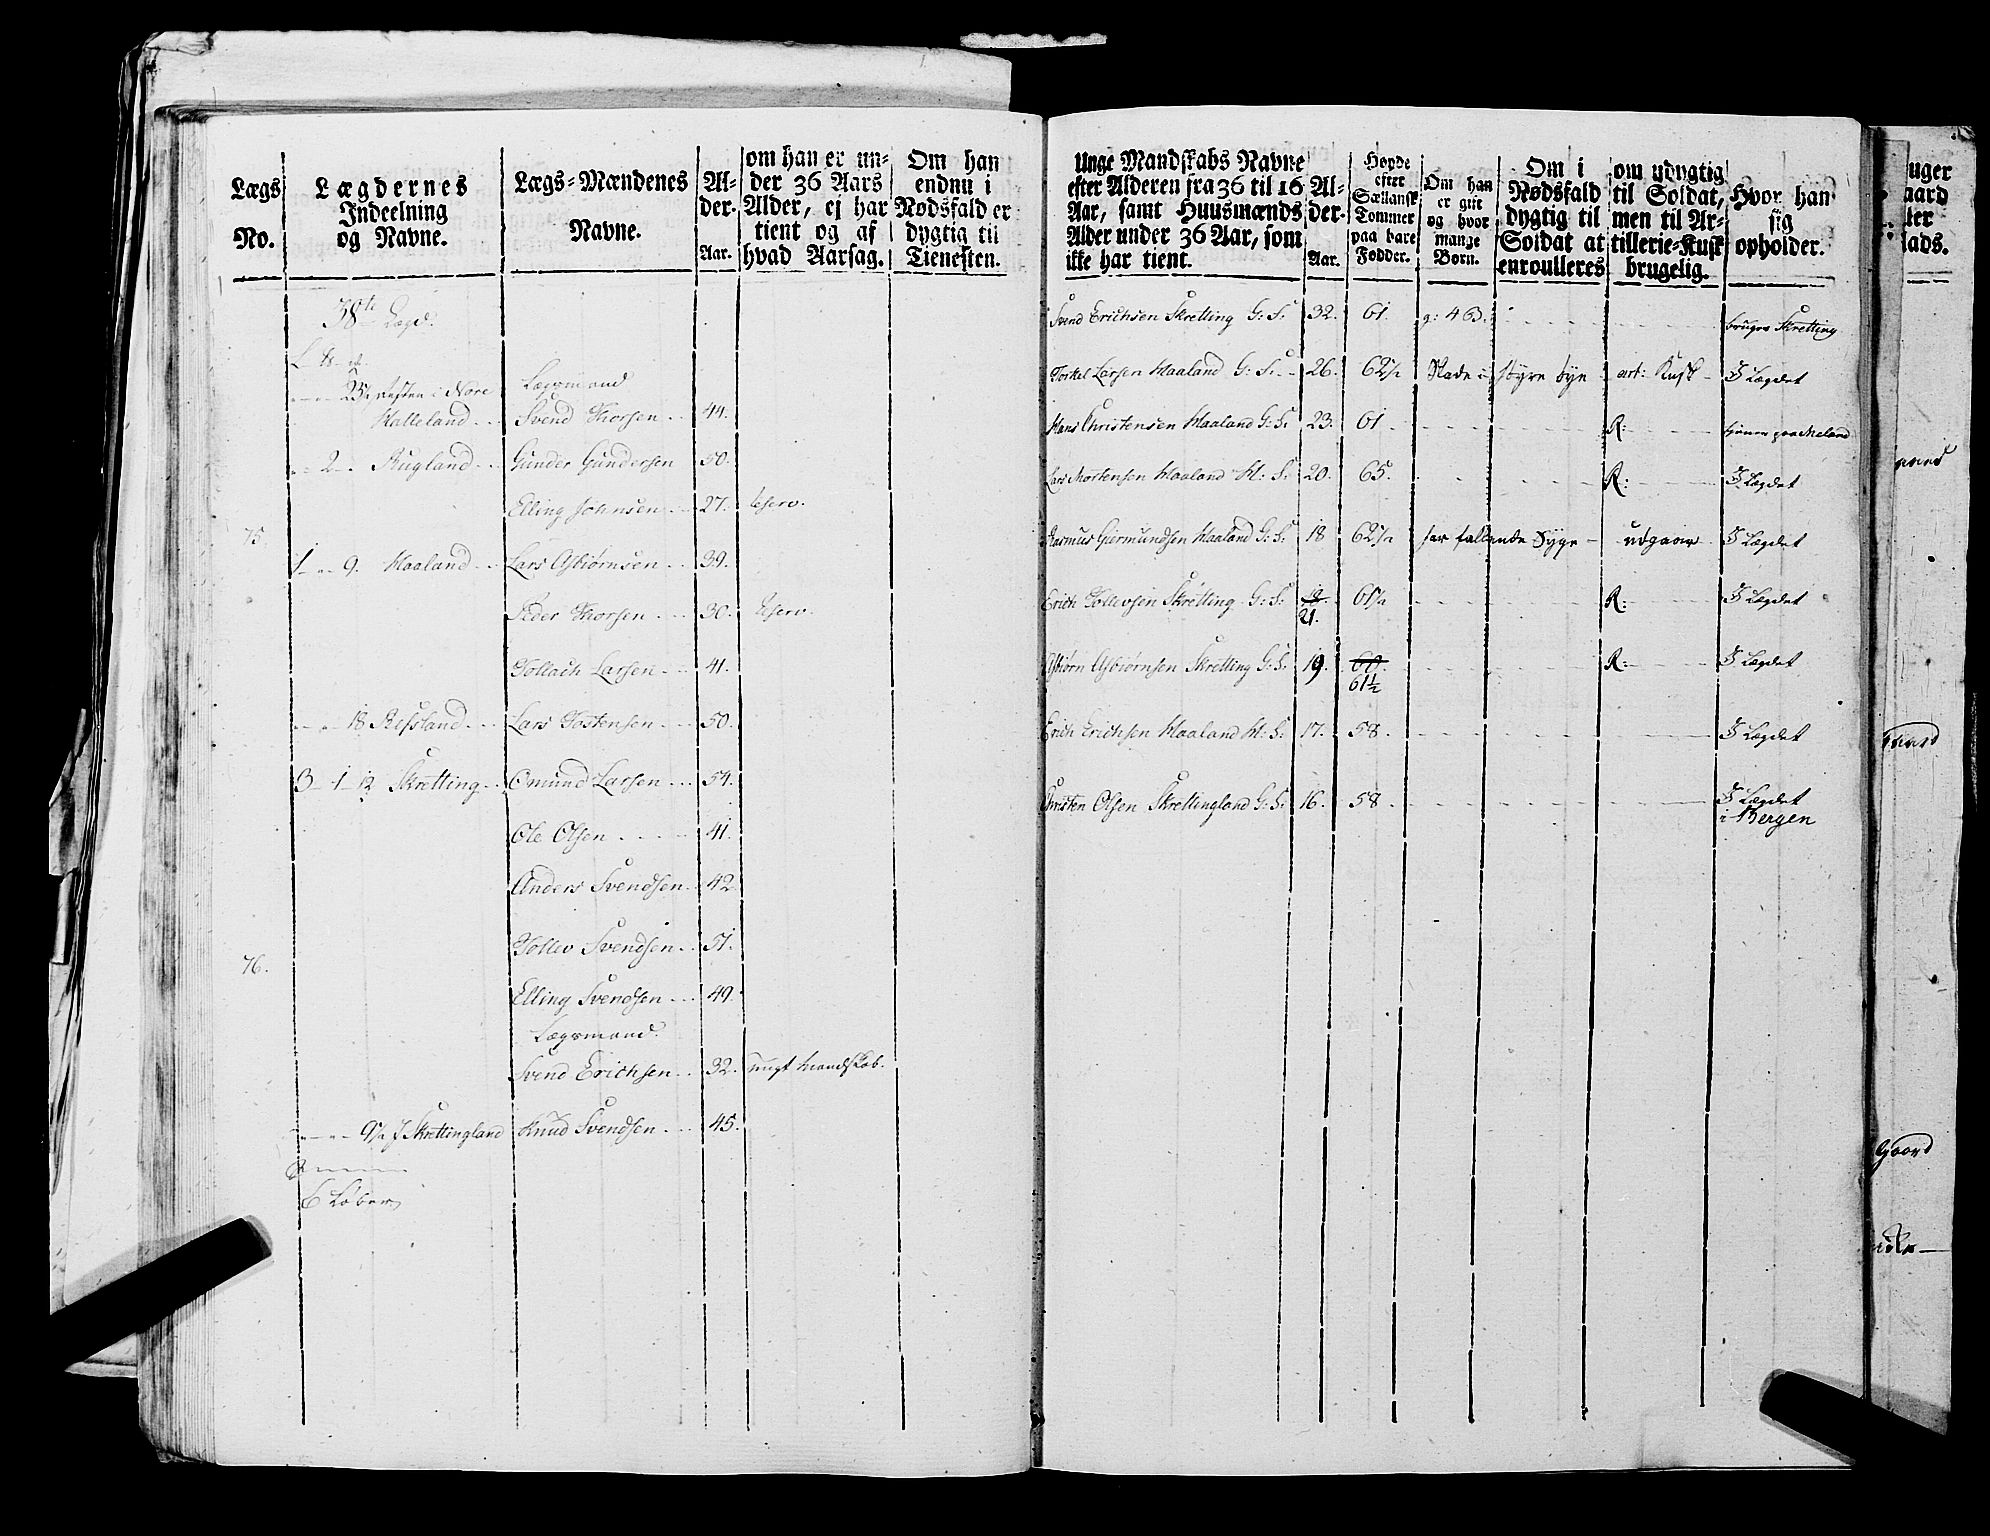 Lægs No.
Lægdernes Indeelning og Navne.
Lægs-Mændenes Navne.
Alder. Aar.
om han er under 36 Aars Alder, ej har tient og af hvad Aarsag.
Om han endnu i Nødsfald er dygtig til Tienesten.
38te Lægd.
Lægsmand
Halleland Svend Thorsen 44.
2 Rugland Gunder Gundersen 50.
Elling Johnsen 27. reserv.
75.
1 9. Haaland Lars Asbiørnsen 39.
Peder Thorsen 30. reserv.
Tollach Larsen 41.
18 Refsland Lars Tostensen 50.
3 1 12 Skretting Omund Larsen 54.
Ole Olsen 41.
Anders Svendsen 42.
Tollev Svendsen 51.
76.
Elling Svendsen 49.
Lægsmand.
Svend Erichsen 32. ungt Mandskab.
9½ J Skrettingland Knud Svendsen 45.
6 Løber
Unge Mandskabs Navne efter Alderen fra 36 til 16 Aar, samt Huusmænds Alder under 36 Aar, som ikke har tient.
Alder. Aar.
Høyde efter Sællansk Tommer paa bare Fødder.
Om han er gift og hvor mange Børn.
Om i Nødsfald dygtig til Soldat at enroulleres
om udygtig til Soldat, men til Artillerie-Kusk brugelig.
Hvor han sig opholder.
Svend Erichsen Skretting G: S: 32. 61. g: 4 63. bruger Skretting
Torkel Larsen Haaland G: S: 26. 62½ Skade i høyre Øye art: Kusk I Lægdet
Hans Christensen Haaland G: S: 23. 61 R: tiener paa
Lars Mortensen Haaland H: S: 20. 65. R: I Lægdet
Rasmus Giermundsen Haaland G: S: 18 62½ har fallende Syge udgaar I Lægdet
Erich Tollevsen Skretting G: S: 18. 21. 61½ R: I Lægdet
Asbiørn Asbiørnsen Skretting G: S: 19. 60. 61½ R: I Lægdet
Erich Erichsen Haaland H: S: 17. 58. I Lægdet
Christen Olsen Skrettingland G: S: 16. 58. I Lægdet
i Bergen
uger
aard
ter
lads.
Gaard